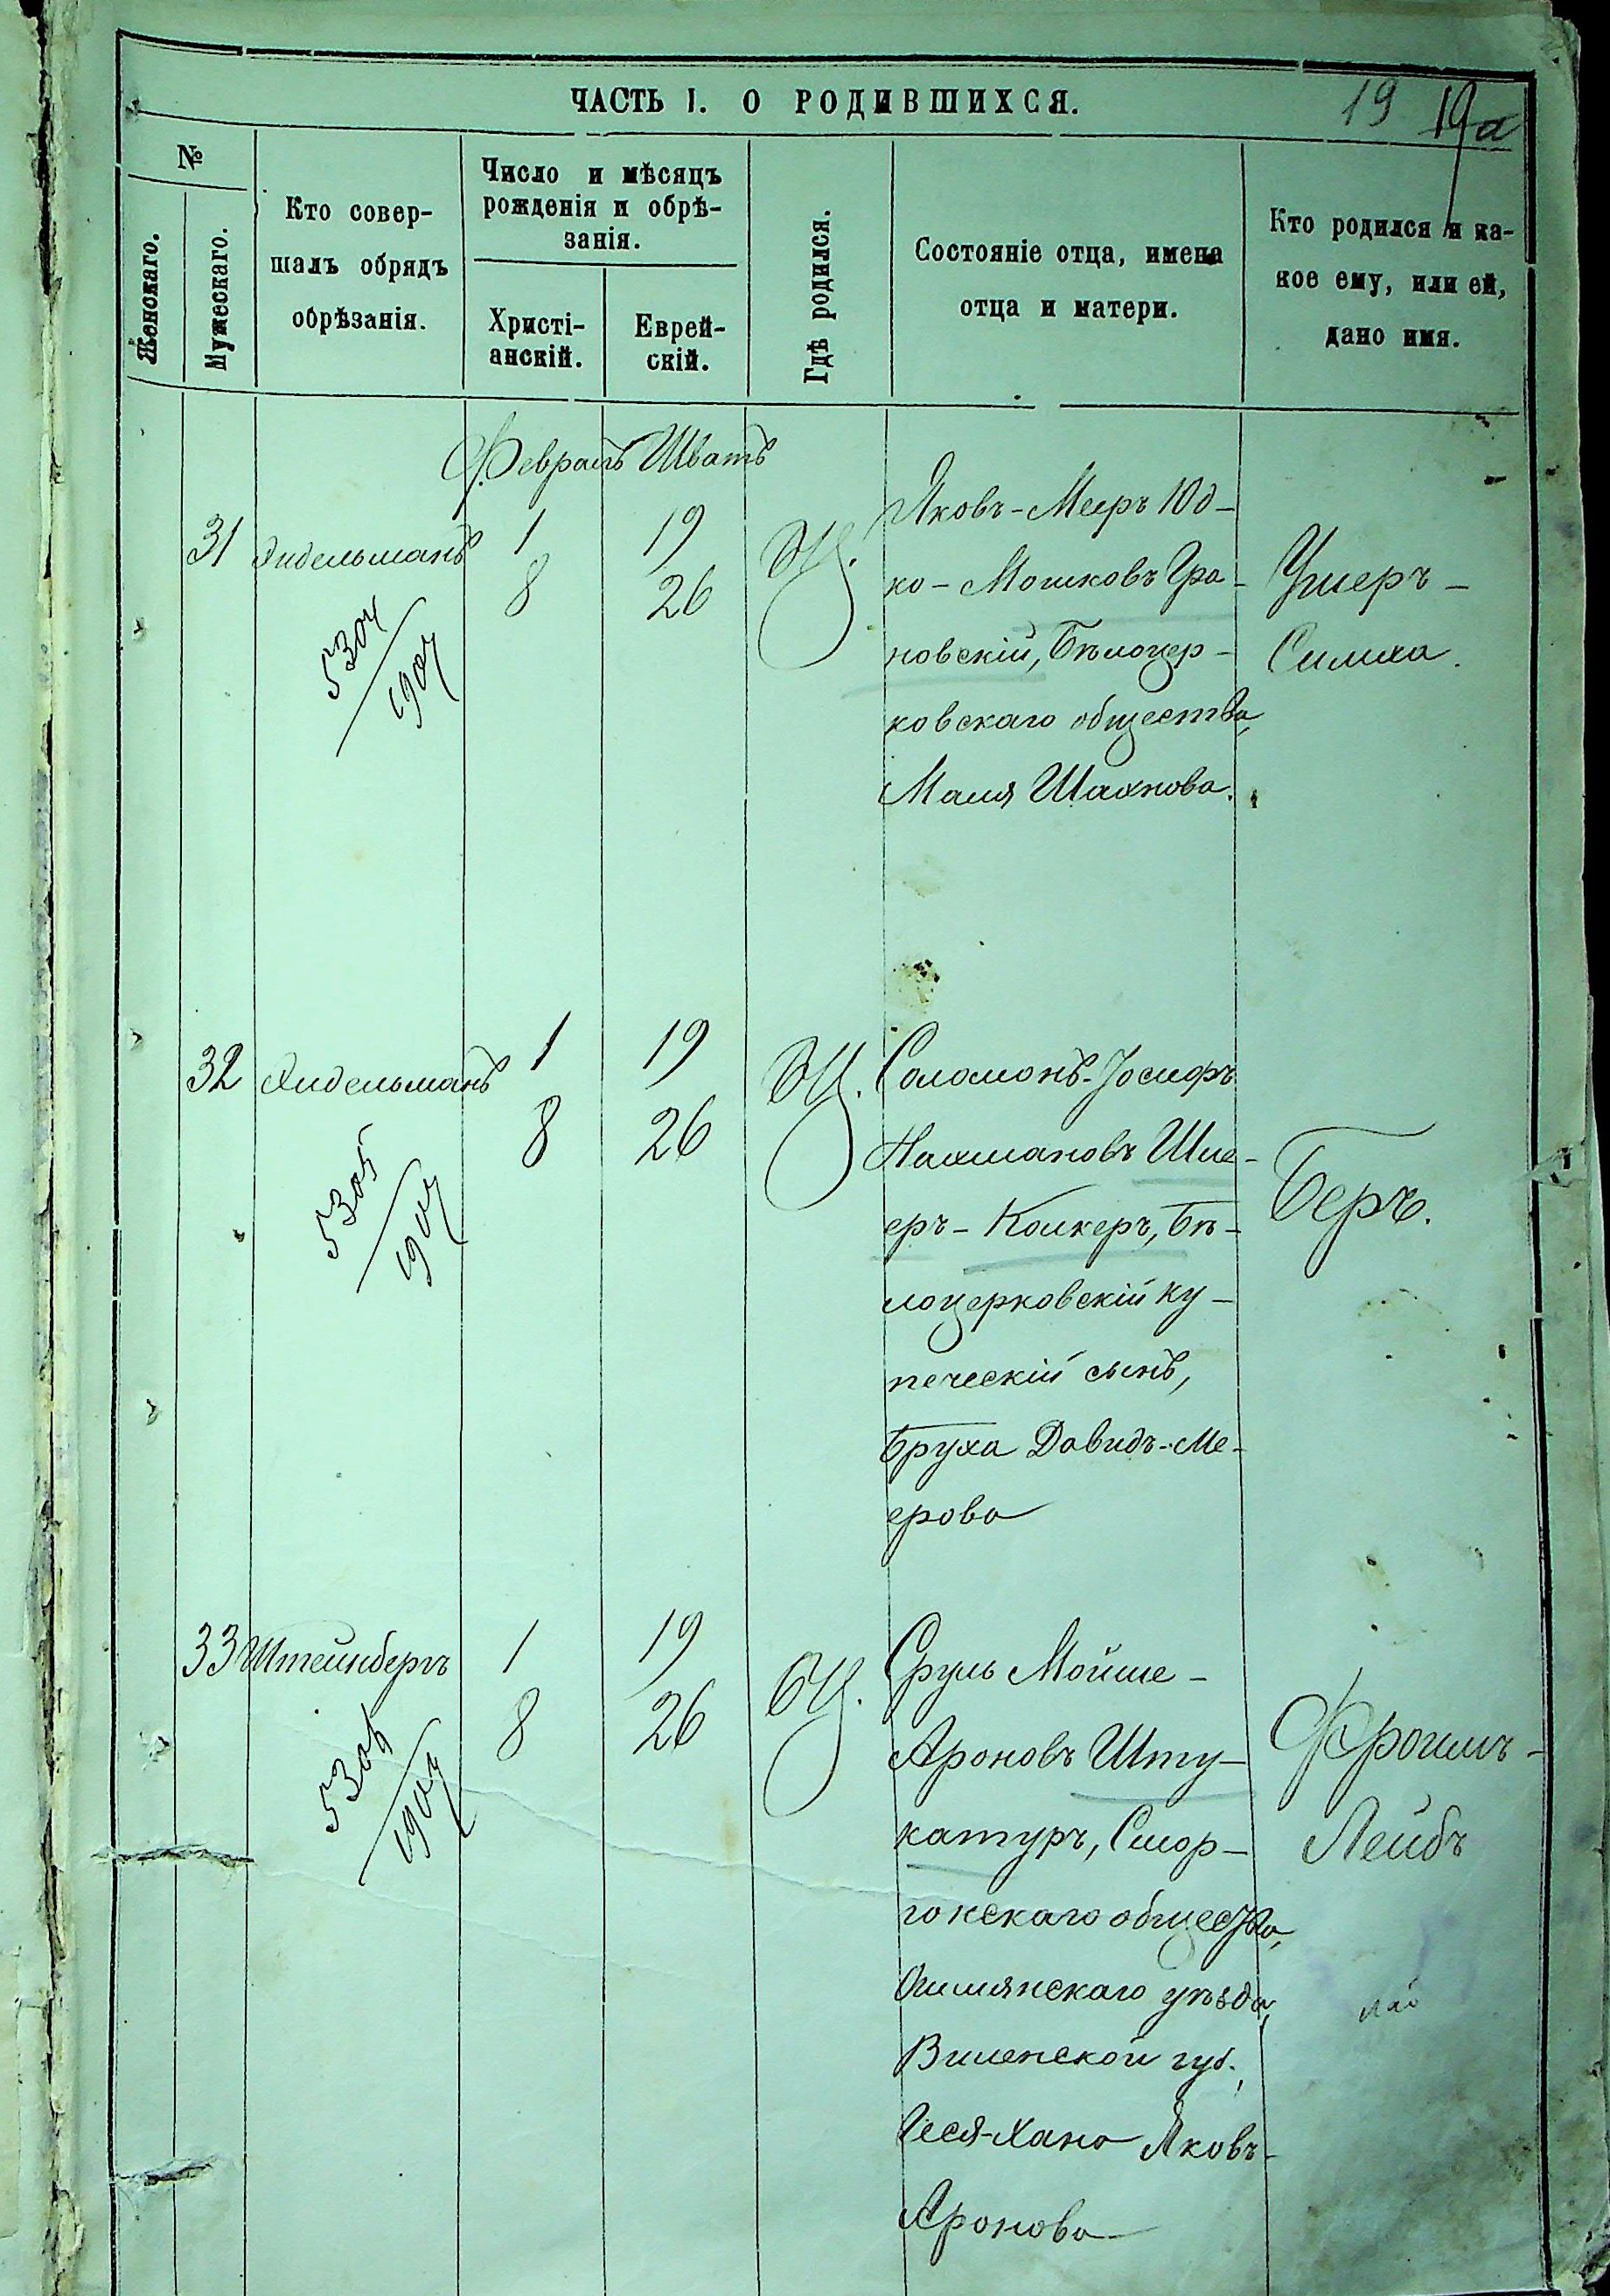 ЧАСТЬ I. О РОДИВШИХСЯ.
19 19а
№
Женскаго.
Мужескаго.
Кто совер-
шалъ обрядъ
обрѣзанія.
Число и мѣсяцъ
рожденія и обрѣ-
занія.
Христі-
анскій.
Еврей-
скій.
Гдѣ родился.
Состояніе отца, имена
отца и матери.
Кто родился и ка-
кое ему, или ей,
дано имя.
Февраль Шватъ
31 Эйдельманъ 1 19 БЦ.
8 26
5304
1904
Яковъ-Мееръ Юд-
ко-Мошковъ Гра-
новскій, Бѣлоцер-
ковскаго общества,
Маля Шахнова.
Ушеръ-
Симха.
32 Эйдельманъ 1 19 БЦ.
8 26
5305
1904
Соломонъ-Іосифъ
Нахмановъ Шпе-
еръ-Колкеръ, Бѣ-
лоцерковскій ку-
печескій сынъ,
Бруха Давидъ-Ме-
ерова
Беръ.
33 Штейнбергъ 1 19 БЦ.
8 26
5306
1904
Сруль Мойше-
Ароновъ Шту-
катуръ, Смор-
гонскаго общества,
Ошмянскаго уѣзда,
Виленской губ.,
Песя-Хана Яковъ-
Аронова
Фроимъ-
Лейбъ